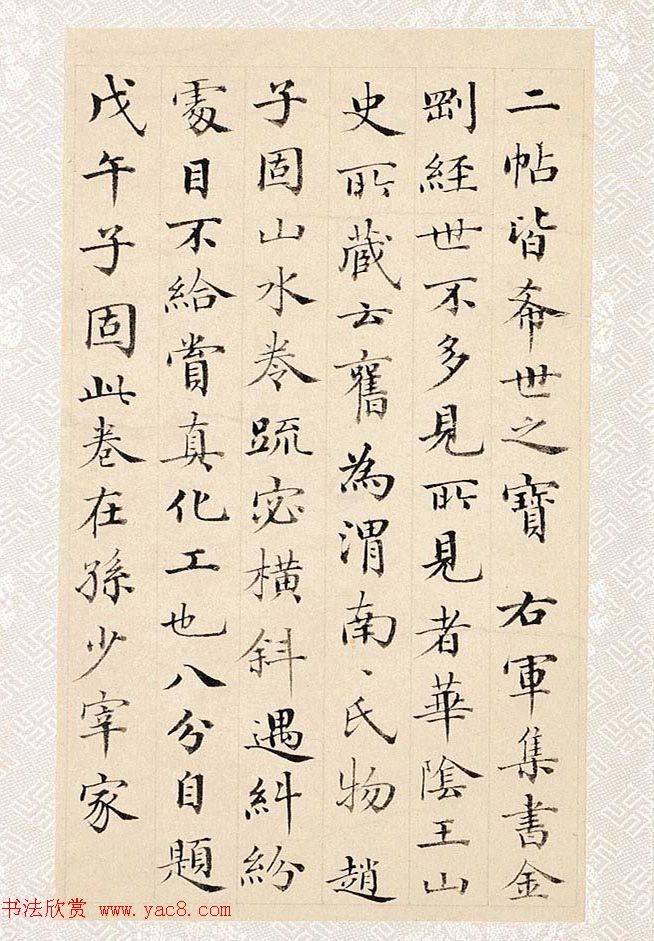 二帖皆希世之寶　右軍集書金
剛經世不多見所見者華陰王山
史所藏云舊為渭南〻氏物　趙
子固山水卷疏宻橫斜遇糾紛
處目不給賞真化工也八分自題
戊午子固此卷在孫少宰家
书法欣赏 www.yac8.com